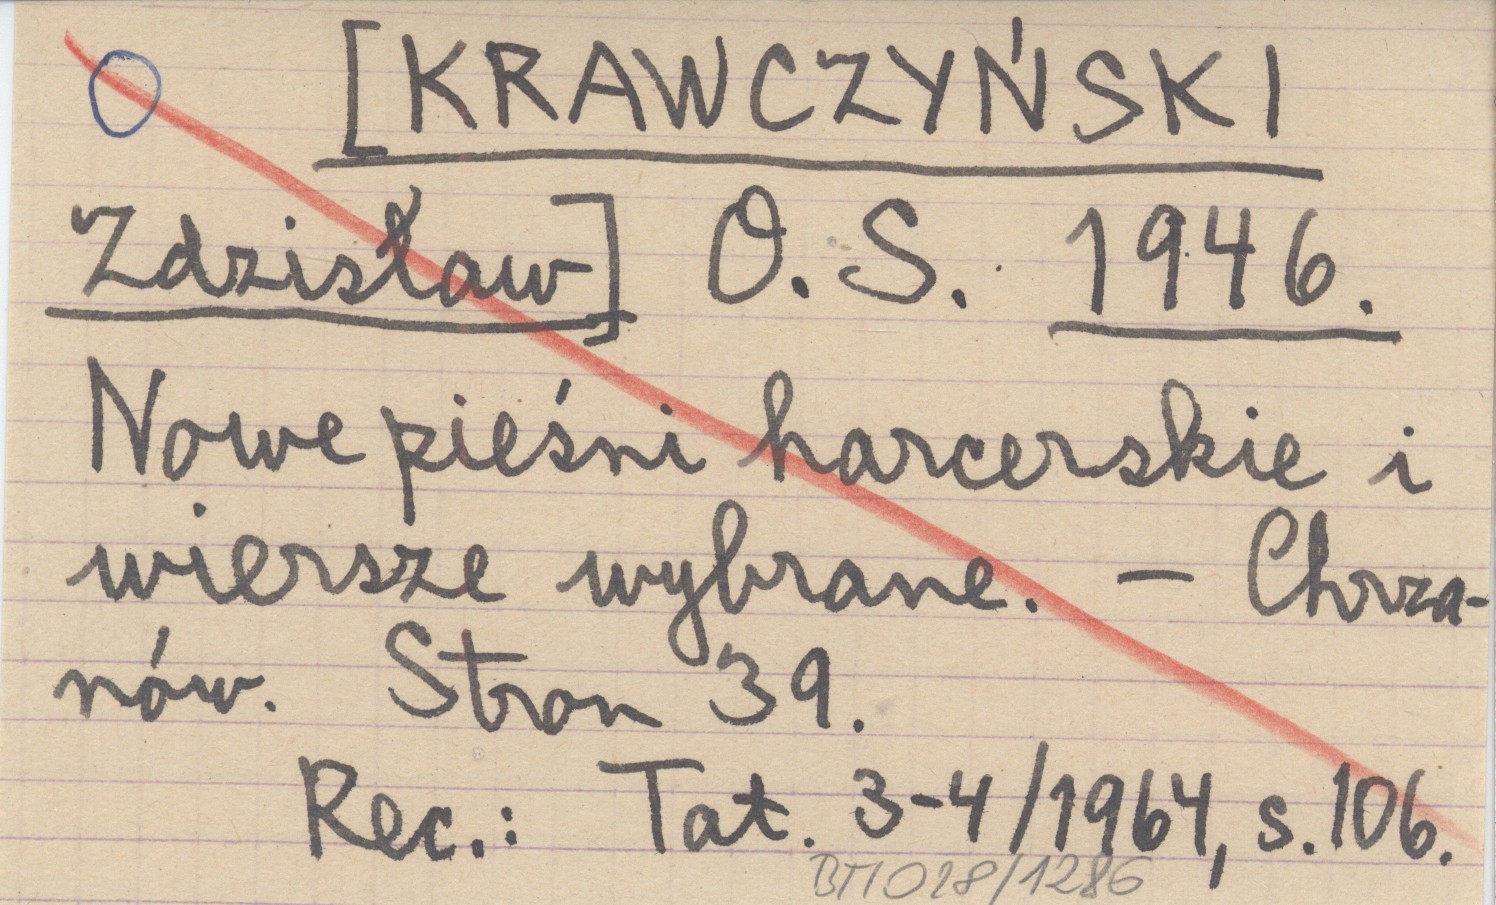 [KRAWCZYŃSKI
Zdzisław] O.S. 1946.
Nowe pieśni harcerskie i
wiersze wybrane. – Chrza-
nów. Stron 39.
Rec.: Tat. 3-4/1964, s. 106.
BTT 028/1286